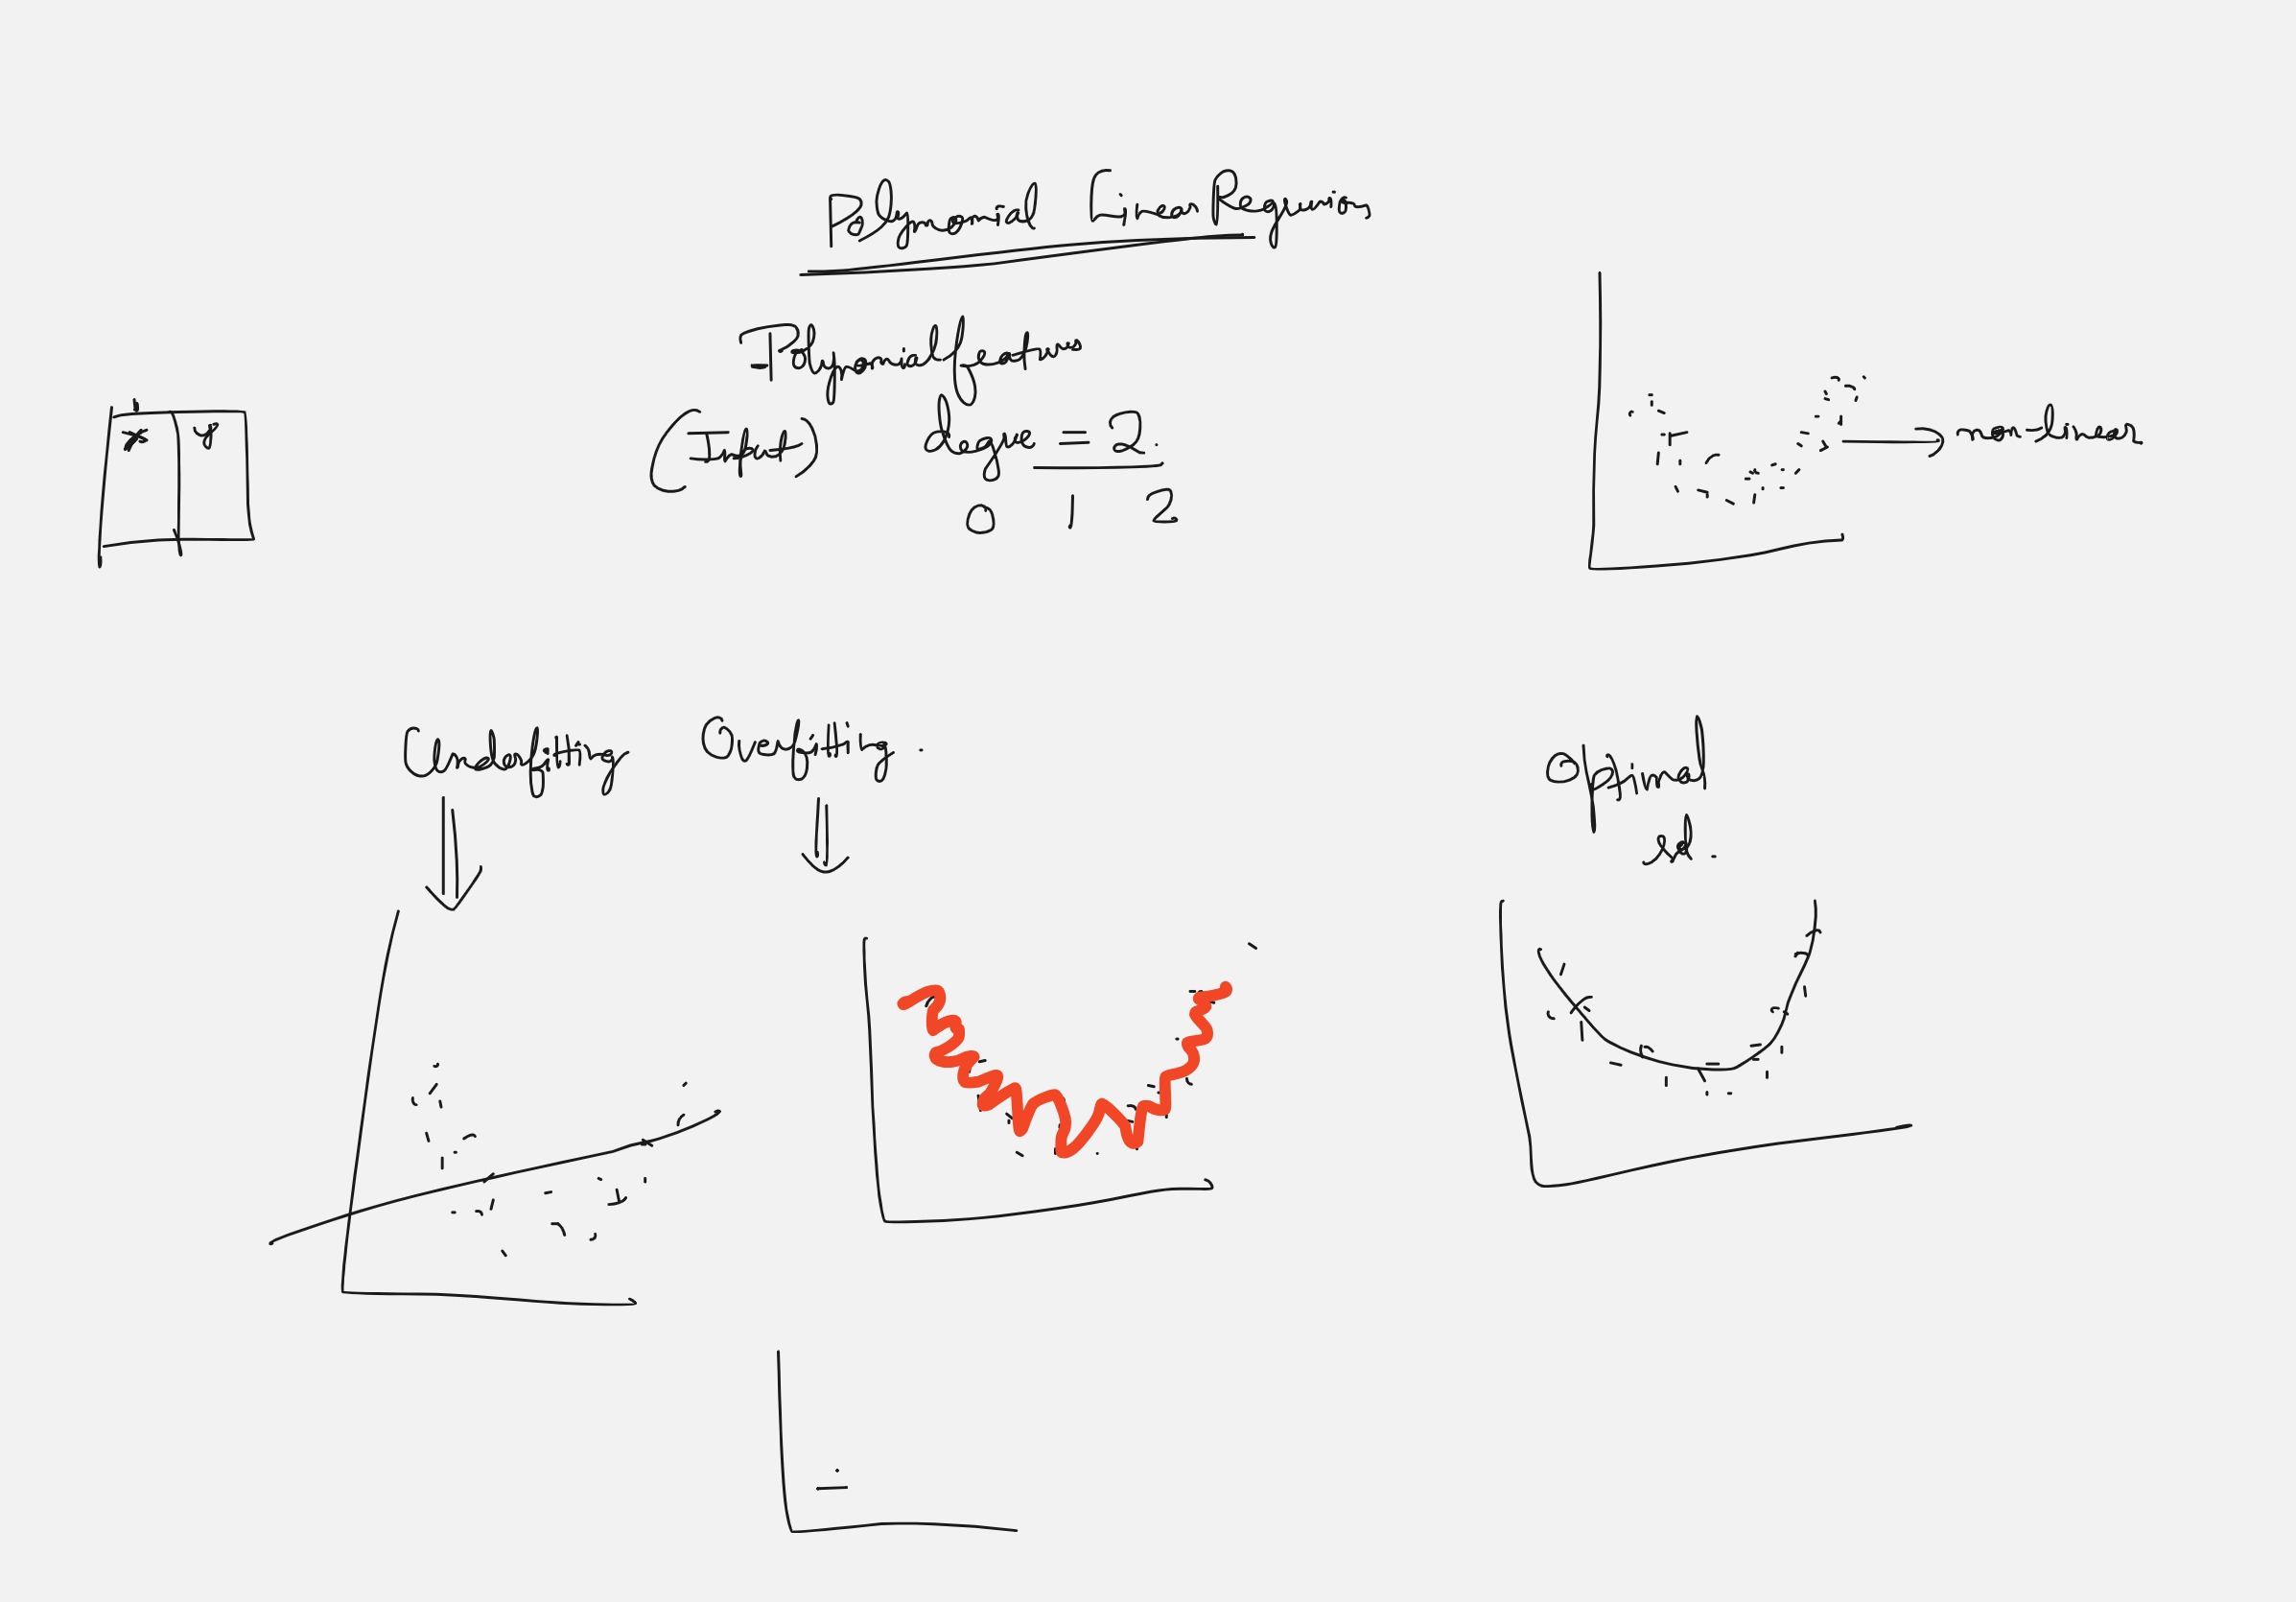 Polynomial Linear Regression
Polynomial features
(Input) degree = 2.
0 1 2
x y
non-linear
Underfitting Overfitting.
Optimal
sol.